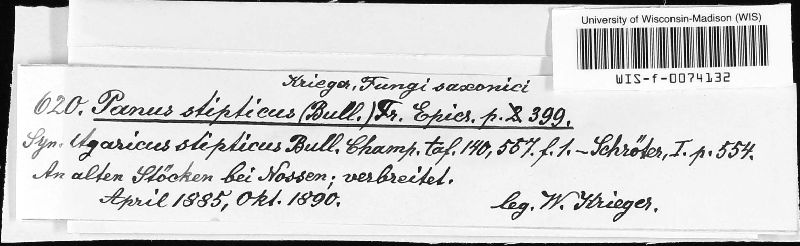 University of Wisconsin-Madison (WIS)
WIS-f-0074132
Krieger, Fungi saxonici
620. Panus stipticus (Bull.) Fr. Epicr. p. 399.
Syn. Agaricus stipticus Bull. Champ. taf. 140, 557. f. 1. – Schröter, I. p. 554.
An alten Stöcken bei Nossen; verbreitet.
April 1885, Okt. 1890. leg. W. Krieger.